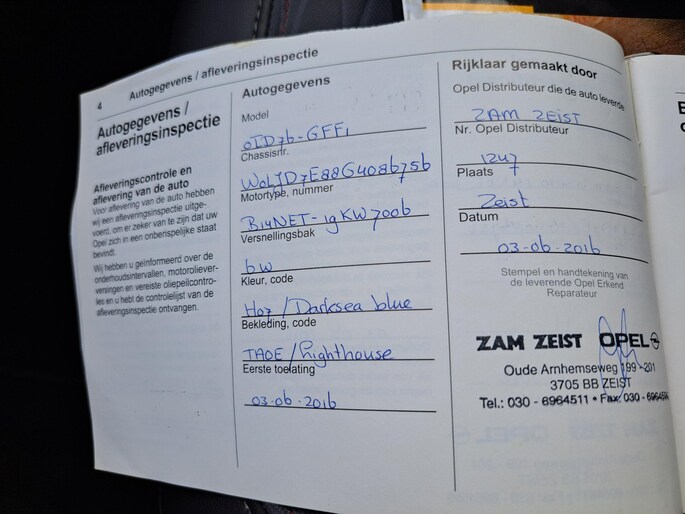 4
Autogegevens / afleveringsinspectie
Autogegevens /
afleveringsinspectie
Afleveringscontrole en
aflevering van de auto
Voor aflevering van de auto hebben
wij een afleveringsinspectie uitge-
voerd, om er zeker van te zijn dat uw
Opel zich in een onberispelijke staat
bevindt.
Wij hebben u geïnformeerd over de
onderhoudsintervallen, motoroliever-
versingen en vereiste oliepeilcontro-
les en u hebt de controlelijst van de
afleveringsinspectie ontvangen.
Autogegevens
Model
0ID76-GFF1
Chassisnr.
W0LJD7E88G4086756
Motortype, nummer
B14NET-19KW7006
Versnellingsbak
6W
Kleur, code
H07/Darksea blue
Bekleding, code
TAOE/Lighthouse
Eerste toelating
03-06-2016
Rijklaar gemaakt door
Opel Distributeur die de auto leverde
ZAM ZEIST
Nr. Opel Distributeur
1247
Plaats
Zeist
Datum
03-06-2016
Stempel en handtekening van
de leverende Opel Erkend
Reparateur
ZAM ZEIST OPEL
Oude Arnhemseweg 199 -201
3705 BB ZEIST
Tel.: 030 - 6964511 • Fax: 030 -